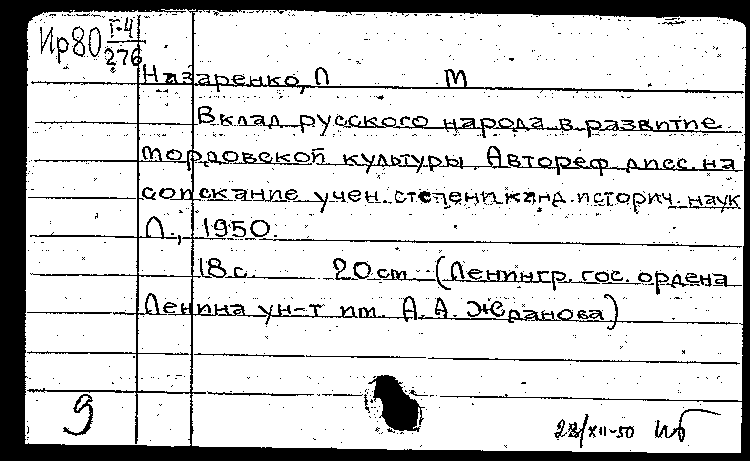 Ир80 Г-4/276
Назаренко, Л М
Вклад русского народа в развитие
мордовской культуры. Автореф дисс. на
соискание учен. степени канд. историч. наук
Л., 1950.
18 с. 20 см (Ленингр. гос. ордена
Ленина ун-т им. А. А. Жданова)
9 28/XII-50